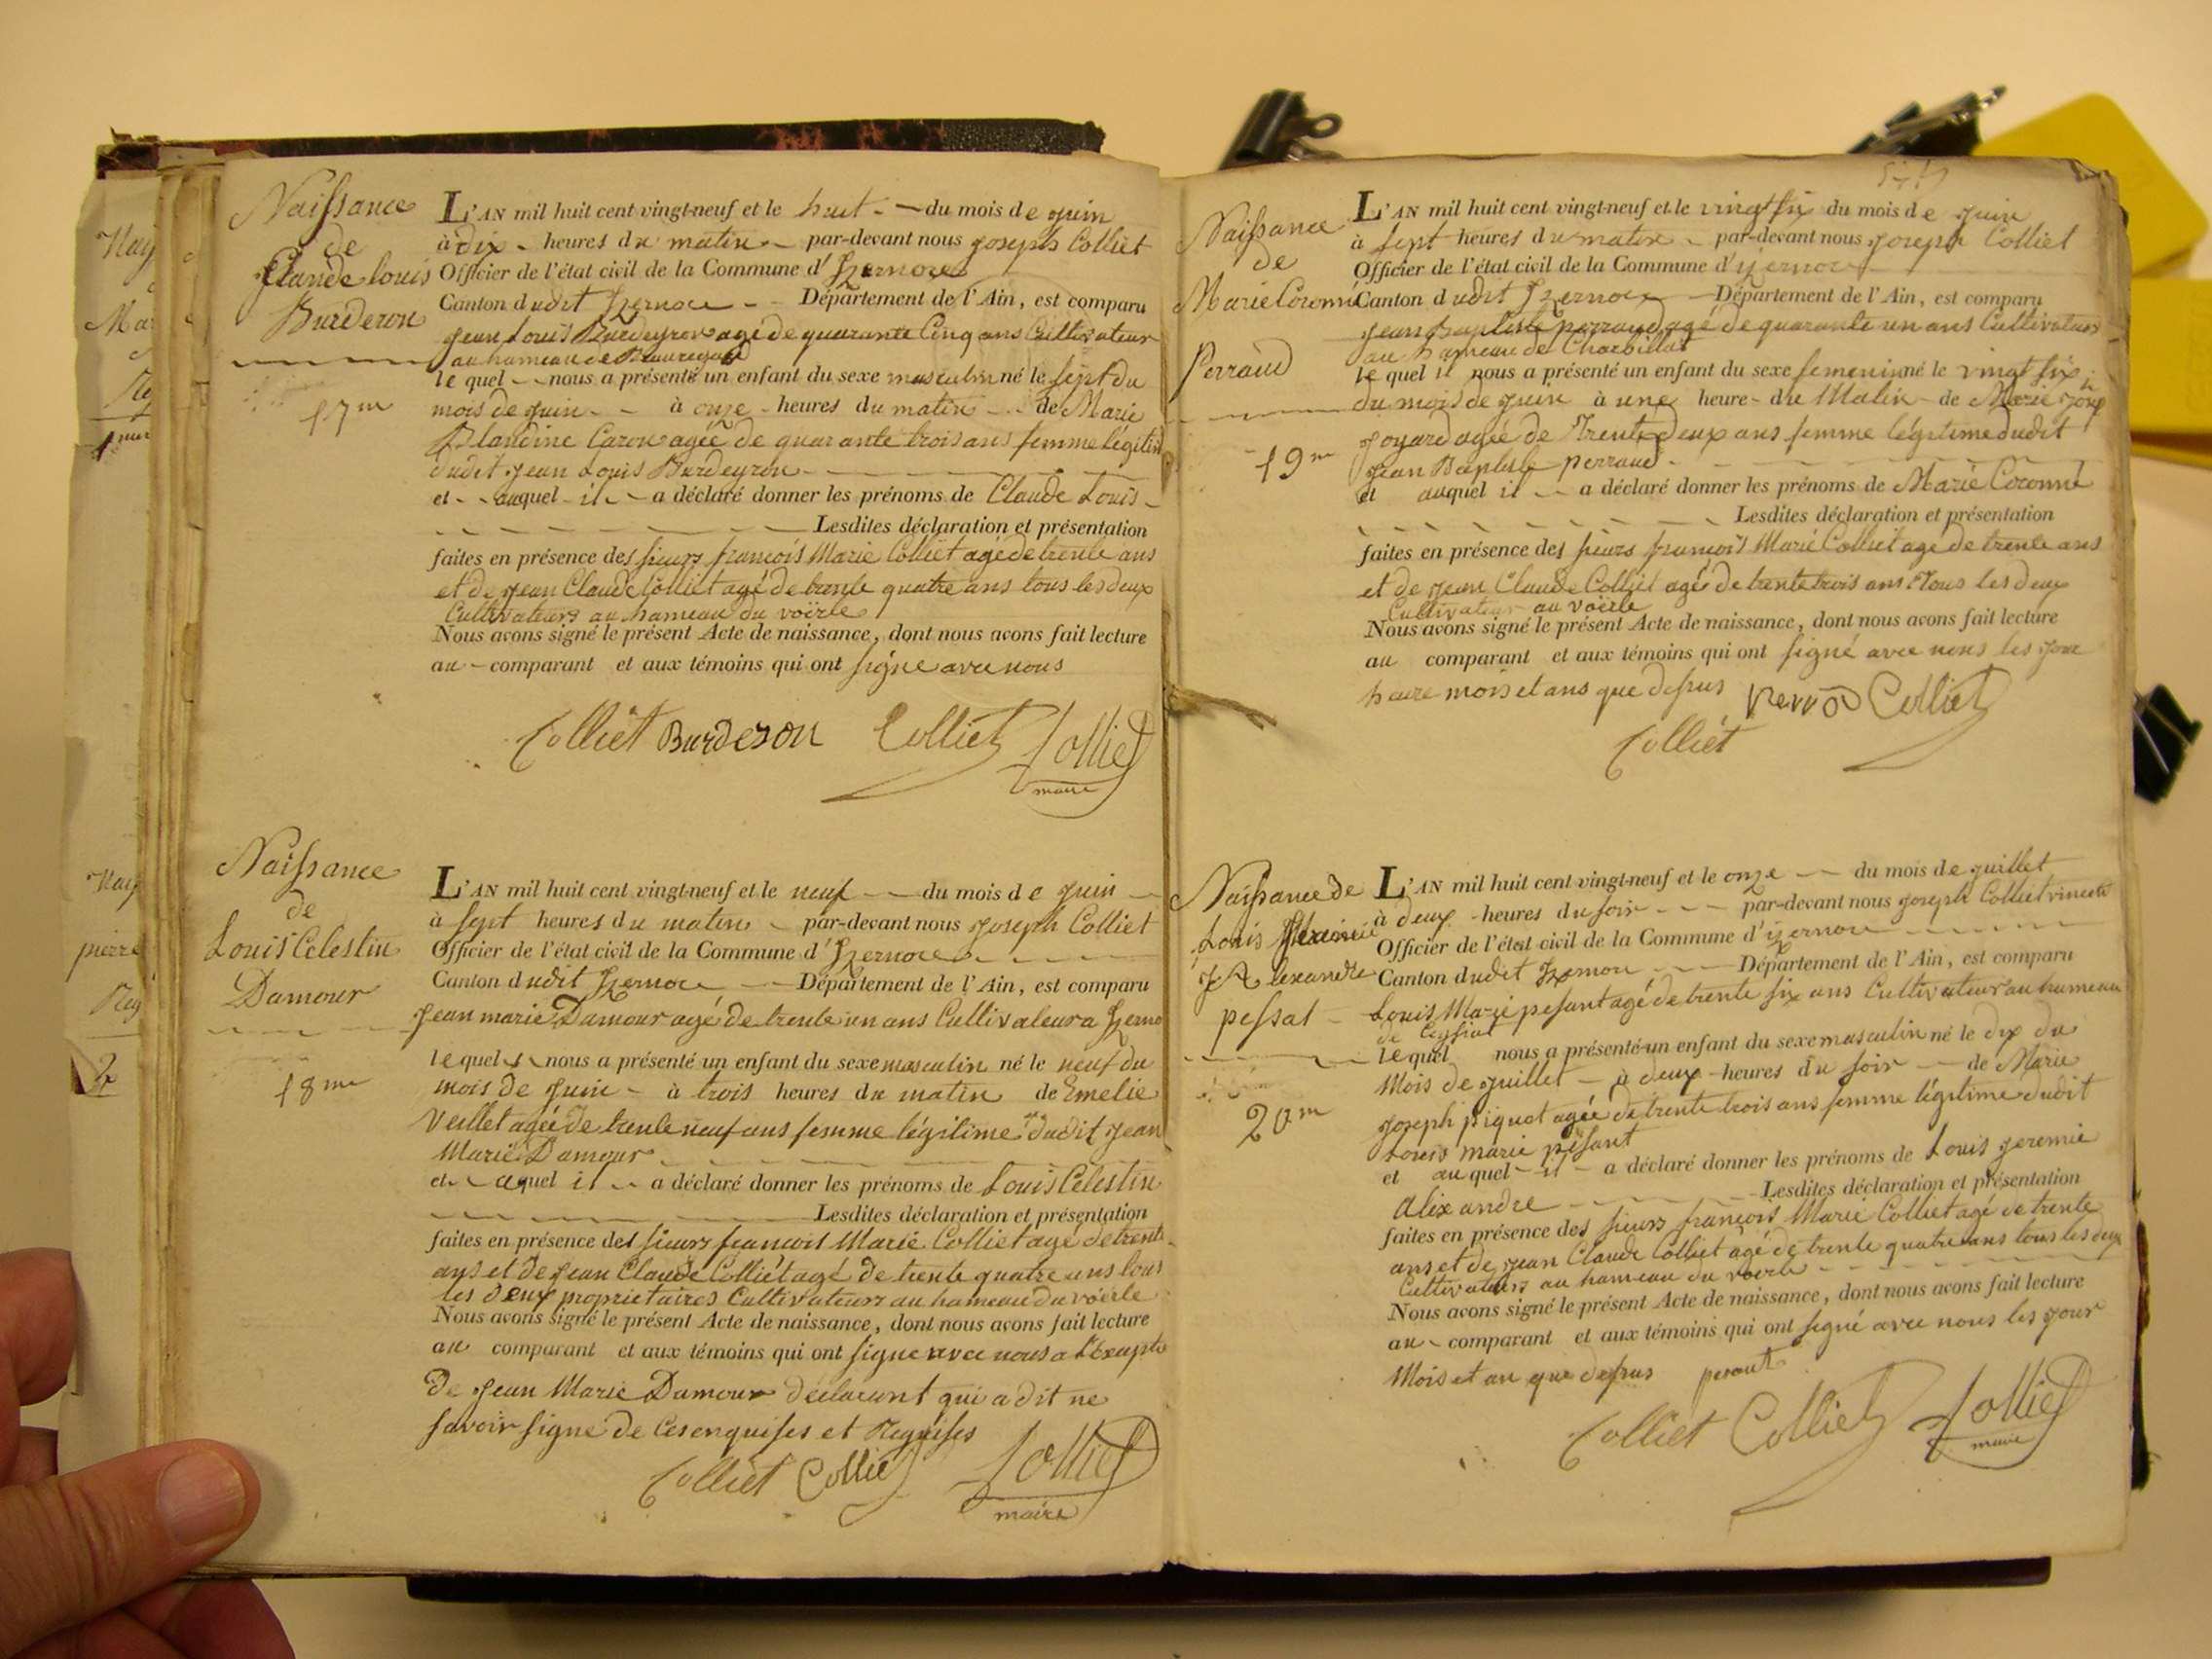 Naissance
de
Claude Louis
Burderon
17me
L'AN mil huit cent vingt-neuf et le huit du mois de juin
à dix heures du matin par-devant nous joseph Colliet
Officier de l'état civil de la Commune d'Izernore
Canton dudit Izernore Département de l'Ain, est comparu
jean Louis Burdeyron agé de quarante Cinq ans Cultivateur
au hameau de Beauregard
lequel nous a présenté un enfant du sexe masculin né le sept du
mois de juin à onze heures du matin de Marie
Blandine Caron agée de quarante trois ans femme légitime
dudit jean Louis Burdeyron
et auquel il a déclaré donner les prénoms de Claude Louis
Lesdites déclaration et présentation
faites en présence des sieurs françois Marie Colliet agé de trente ans
et de jean Claude Colliet agé de trente quatre ans tous les deux
Cultivateurs au hameau du voërle
Nous avons signé le présent Acte de naissance, dont nous avons fait lecture
au comparant et aux témoins qui ont signé avec nous
Colliet Burderon Colliet Colliet
maire
Naissance
de
Louis Celestin
Damour
18me
L'AN mil huit cent vingt-neuf et le neuf du mois de juin
à sept heures du matin par-devant nous joseph Colliet
Officier de l'état civil de la Commune d'Izernore
Canton dudit Izernore Département de l'Ain, est comparu
jean marie Damour agé de trente un ans Cultivateur a Izerno
lequel nous a présenté un enfant du sexe masculin né le neuf du
mois de juin à trois heures du matin de Emelie
Veillet agée de trente neuf ans femme légitime dudit jean
Marie Damour
et auquel il a déclaré donner les prénoms de Louis Celestin
Lesdites déclaration et présentation
faites en présence des sieurs francois Marie Colliet agé de trente
ans et de jean Claude Colliet agé de trente quatre ans tous
les deux proprietaires Cultivateurs au hameau du voërle
Nous avons signé le présent Acte de naissance, dont nous avons fait lecture
au comparant et aux témoins qui ont signé avec nous a l'Exepte
de jean Marie Damour déclarant qui a dit ne
savoir signe de Ces enquises et Requises
Colliet Colliet Colliet
maire
Naissance
de
Marie Coronné
Perraud
19me
L'AN mil huit cent vingt-neuf et le vingt six du mois de juin
à sept heures du matin par-devant nous joseph Colliet
Officier de l'état civil de la Commune d'izernore
Canton dudit Izernore Département de l'Ain, est comparu
jean baptiste perraud agé de quarante un ans Cultivateur
au hameau de Charbillat
lequel il nous a présenté un enfant du sexe femenin né le vingt six
du mois de juin à une heure du Matin de Marie
joyard agée de Trente deux ans femme légitime dudit
jean Baptiste perraud
et auquel il a déclaré donner les prénoms de Marie Coronné
Lesdites déclaration et présentation
faites en présence des sieurs françois Marie Colliet agé de trente ans
et de jean Claude Colliet agé de trente trois ans Tous les deux
Cultivateur au voërle
Nous avons signé le présent Acte de naissance, dont nous avons fait lecture
au comparant et aux témoins qui ont signé avec nous les jour
heure mois et ans que dessus Colliet
Colliet
Naissance de
Louis
Alexandre
pessat
20me
L'AN mil huit cent vingt-neuf et le onze du mois de juillet
à deux heures du soir par-devant nous joseph Colliet
Officier de l'état civil de la Commune d'izernore
Canton dudit Izernore Département de l'Ain, est comparu
Louis Marie pesant agé de trente six ans Cultivateur au hameau
de Ceyssiat
lequel nous a présenté un enfant du sexe masculin né le dix du
Mois de juillet à deux heures du soir de Marie
joseph piquet agée de trente trois ans femme légitime dudit
Louis marie pesant
et auquel il a déclaré donner les prénoms de Louis jeremie
Alixandre Lesdites déclaration et présentation
faites en présence des sieurs françois Marie Colliet agé de trente
ans et de jean Claude Colliet agé de trente quatre ans tous les deux
Cultivateurs au hameau du voërle
Nous avons signé le présent Acte de naissance, dont nous avons fait lecture
au comparant et aux témoins qui ont signé avec nous les jour
Mois et an que dessus
Colliet Colliet Colliet
maire